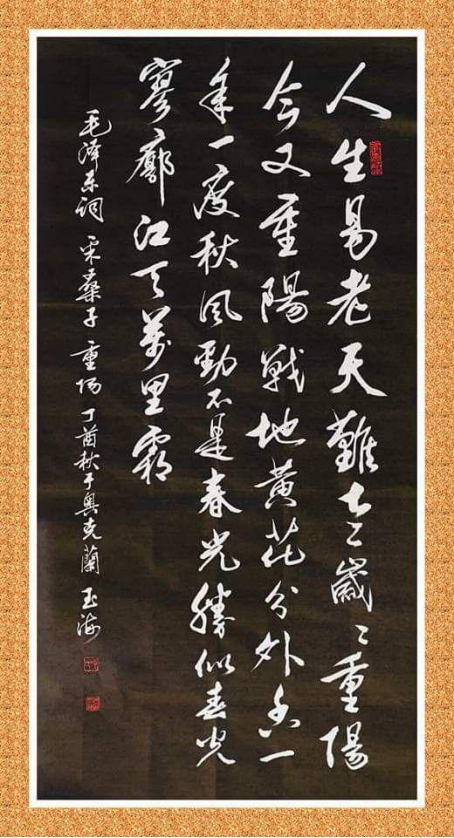 人生易老天難老歲〻重陽
今又重陽戰地黃花分外香一
年一度秋風勁不是春光勝似春光
寥廓江天萬里霜
毛泽东词 采桑子 重阳 丁酉秋于奥克蘭 玉海